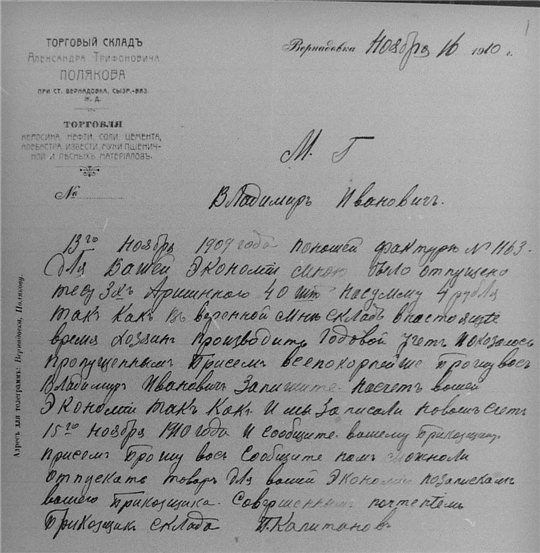 ТОРГОВЫЙ СКЛАДЪ
АЛЕКСАНДРА ТРИФОНОВИЧА
ПОЛЯКОВА
ПРИ СТ. ВЕРНАДОВКА, СЫЗР.-ВЯЗ.
Ж. Д.
ТОРГОВЛЯ
КЕРОСИНА, НЕФТИ, СОЛИ, ЦЕМЕНТА,
АЛЕБАСТРА, ИЗВЕСТИ, МУКИ ПШЕНИЧ-
НОЙ И ЛѢСНЫХЪ МАТЕРІАЛОВЪ.
№
Вернадовка Ноября 16 1910 г.
М. Г
Владимиръ Ивановичъ.
13го Ноября 1909 года по нашей фактуры № 1163
Для Вашей Экономій мною было отпущено
тесу 3х Аршинного 40 шт на сумму 4 рубля
такъ какъ въ веренной мнѣ складъ в настоящее
время хозяин производитъ годовой учетъ и оказалось
пропущеннымъ При семъ всепокорнейше Прошу вас
Владимиръ Ивановичъ Запишите на счетъ вашей
Экономій такъ какъ и мы Записали на вашъ счетъ
15го Ноября 1910 года и сообщите вашему Приказщику
при семъ Прошу вас сообщите намъ можноли
отпускать товаръ для вашей Экономій по запискамъ
вашего Приказщика. Совершеннымъ почтеніемъ
Приказщикъ склада П. Капитановъ
Адресъ для телеграммъ: Вернадовка, Полякову.